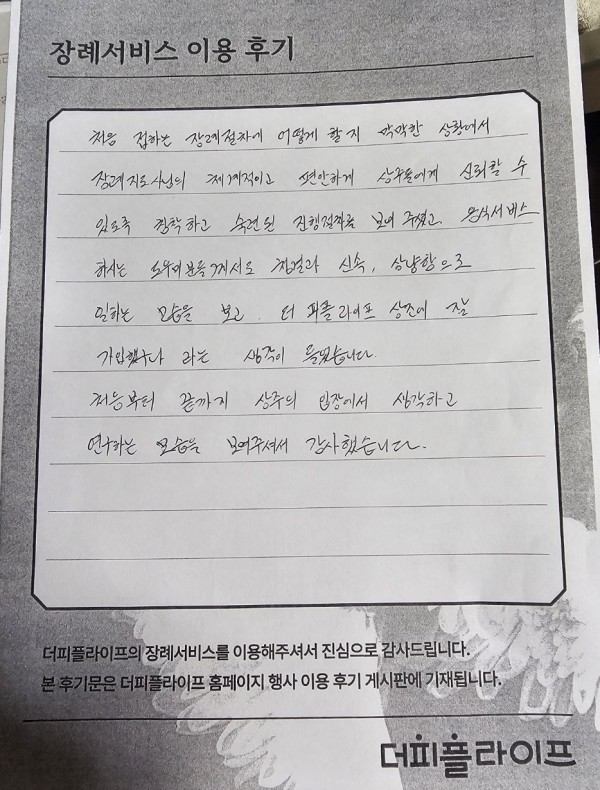 장례서비스 이용 후기
처음 접하는 장례절차에 어떻게 할지 막막한 상황에서
장례지도사님의 체계적이고 편안하게 상주들에게 신뢰할 수
있도록 침착하고 숙련된 진행절차를 보여 주셨고. 음식서비스
하시는 도우미분들께서도 친절과 신속, 상냥함으로
일하는 모습을 보고. 더 피플라이프 상조에 잘
가입했구나 라는 생각이 들었습니다.
처음부터 끝까지 상주의 입장에서 생각하고
연구하는 모습을 보여주셔서 감사했습니다.
더피플라이프의 장례서비스를 이용해주셔서 진심으로 감사드립니다.
본 후기문은 더피플라이프 홈페이지 행사 이용 후기 게시판에 기재됩니다.
더피플라이프